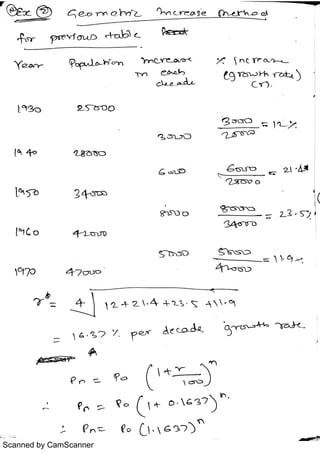 Ex ② Geometric Increase Method
for previous table
Year Population increase % Increase
in each (growth rate)
decade (r).
1930 25000
3000 3000/25000 = 12%
1940 28000
6000 6000/28000 = 21.4%
1950 34000
8000 8000/34000 = 23.5%
1960 42000
5000 5000/42000 = 11.9%
1970 47000
r = 4√12 + 21.4 + 23.5 + 11.9
= 16.37 % per decade growth rate.
Pn = Po (1 + r/100)^n
∴ Pn = Po (1 + 0.1637)^n.
∴ Pn = Po (1.1637)^n
Scanned by CamScanner